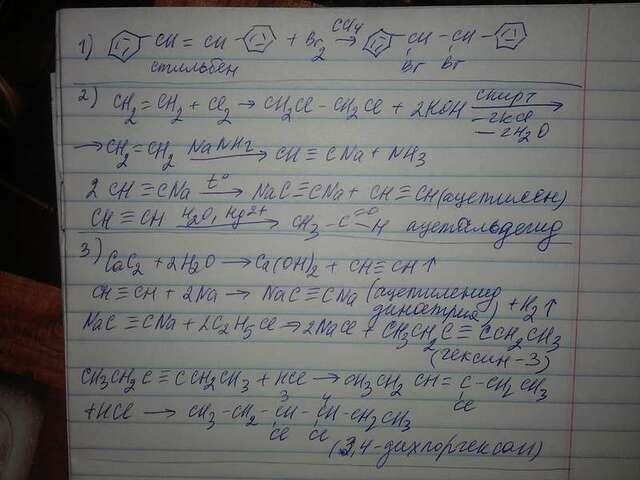 1) –CH=CH– + Br2 →CCl4 –CH–CH–
Br Br
стильбен
2) CH2=CH2 + Cl2 → CH2Cl–CH2Cl + 2KOH спирт →
–2KCl
–2H2O
→ CH2=CH2 NaNH2 → CH≡CNa + NH3
2 CH≡CNa t° → NaC≡CNa + CH≡CH (ацетилен)
CH≡CH H2O, Hg2+ → CH3–C=O–H ацетальдегид
3) CaC2 + 2H2O → Ca(OH)2 + CH≡CH↑
CH≡CH + 2Na → NaC≡CNa (ацетиленид динатрия) + H2↑
NaC≡CNa + 2C2H5Cl → 2NaCl + CH3CH2C≡CCH2CH3
(гексин-3)
CH3CH2C≡CCH2CH3 + HCl → CH3CH2CH=C–CH2CH3
Cl
+HCl → CH3–CH2–3CH–4CH–CH2CH3
Cl Cl
(3,4-дихлоргексан)